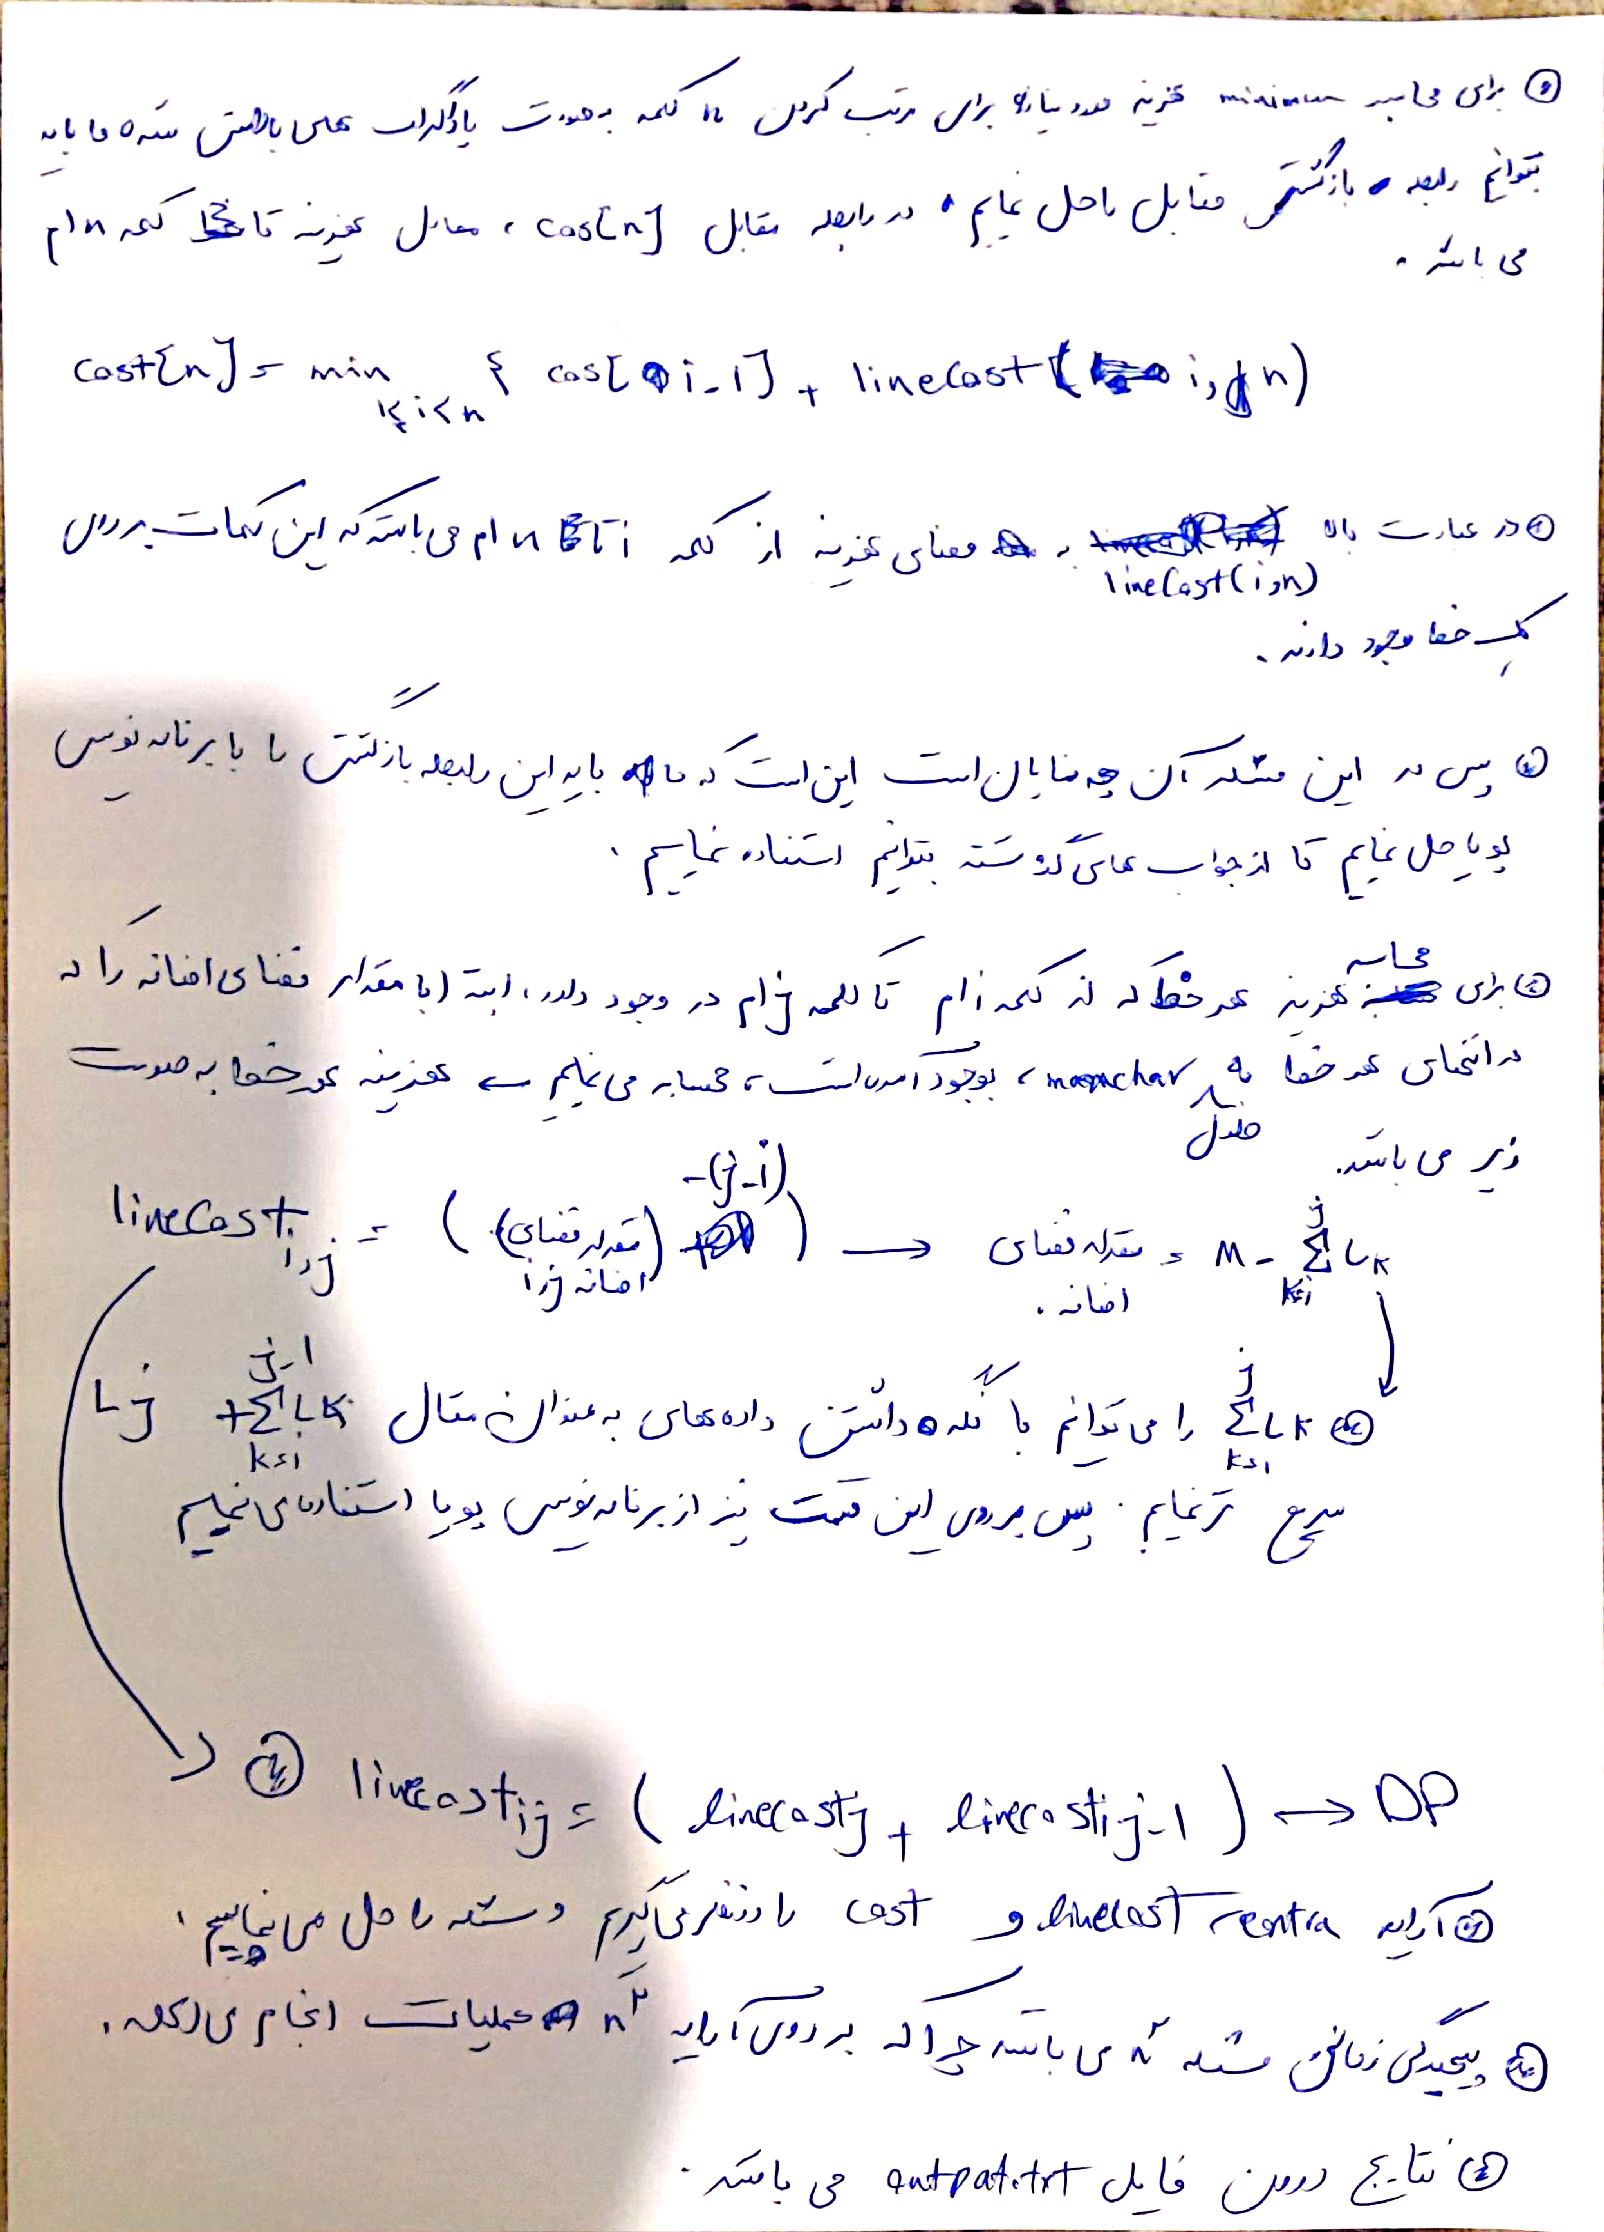 برای محاسبه minimum هزینه مورد نیاز برای مرتب کردن n کلمه به صورت پاراگراف ما باید
بتوانیم رابطه بازگشتی مقابل را حل نماییم. در رابطه مقابل cos[n] ، معادل هزینه تا کلمه n ام
می باشد.
cost[n] = min { cos[i-1] + lineCost(i,n)
1≤i<n
در عبارت بالا به معنای هزینه از کلمه i تا n ام می باشد که این کلمات بر روی
lineCost(i,n)
یک خط وجود دارند.
پس در این مسئله آن چه نمایان است این است که ما باید این رابطه بازگشتی را با برنامه نویسی
پویا حل نماییم تا از جواب های گذشته بتوانیم استفاده نماییم.
برای محاسبه هزینه هر خط که از کلمه i ام تا کلمه j ام در وجود دارد، ابتدا با مقدار فضای اضافه را که
در انتهای هر خط به بوجود آمده است، محسابه می نماییم هزینه هر خط به صورت
زیر می باشد.
lineCost i,j = ( (مقدار فضای اضافه i,j) -(j-i) ) → مقدار فضای اضافه = M - Σ k=i j Lk
Σ k=i j Lk را می توانیم با نگه داشتن داده های به عنوان مثال Lj + Σ k=i j-1 Lk
سریع تر نماییم. پس بر روی این قسمت نیز از برنامه نویسی پویا استفاده می نماییم
linecost ij = ( linecost j + linecost i j-1 ) → DP
آرایه linecost و cost را در نظر می گیریم و مسئله را حل می نماییم.
پیچیدگی زمانی مسئله n² می باشد چرا که بر روی آرایه n² عملیات انجام می
نتایج درون فایل می باشد.